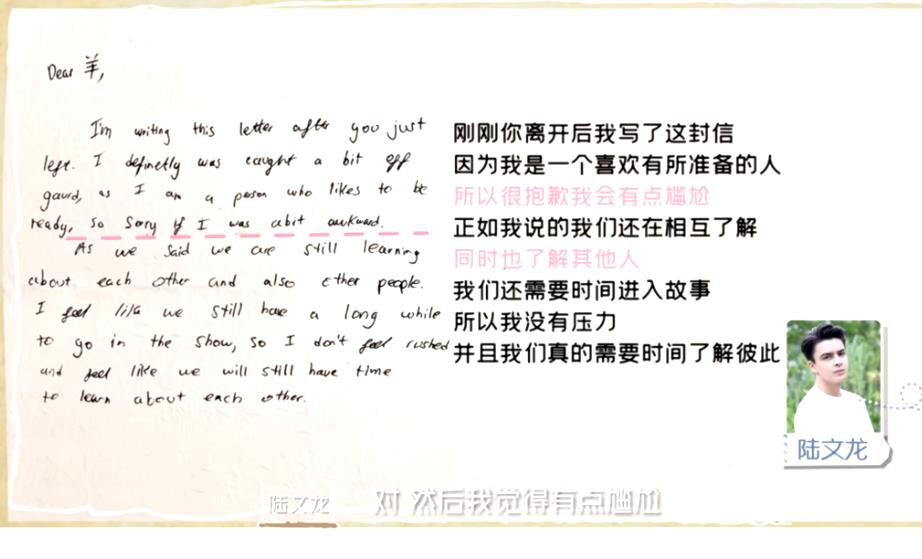 Dear 羊,
I'm writing this letter after you just
left. I definetly was caught a bit off
gaurd, as I am a person who likes to be
ready, so sorry if I was abit awkward.
As we said we are still learning
about each other and also other people.
I feel like we still have a long while
to go in the show, so I don't feel rushed
and feel like we will still have time
to learn about each other.
刚刚你离开后我写了这封信
因为我是一个喜欢有所准备的人
所以很抱歉我会有点尴尬
正如我说的我们还在相互了解
同时也了解其他人
我们还需要时间进入故事
所以我没有压力
并且我们真的需要时间了解彼此
陆文龙
陆文龙 对 然后我觉得有点尴尬